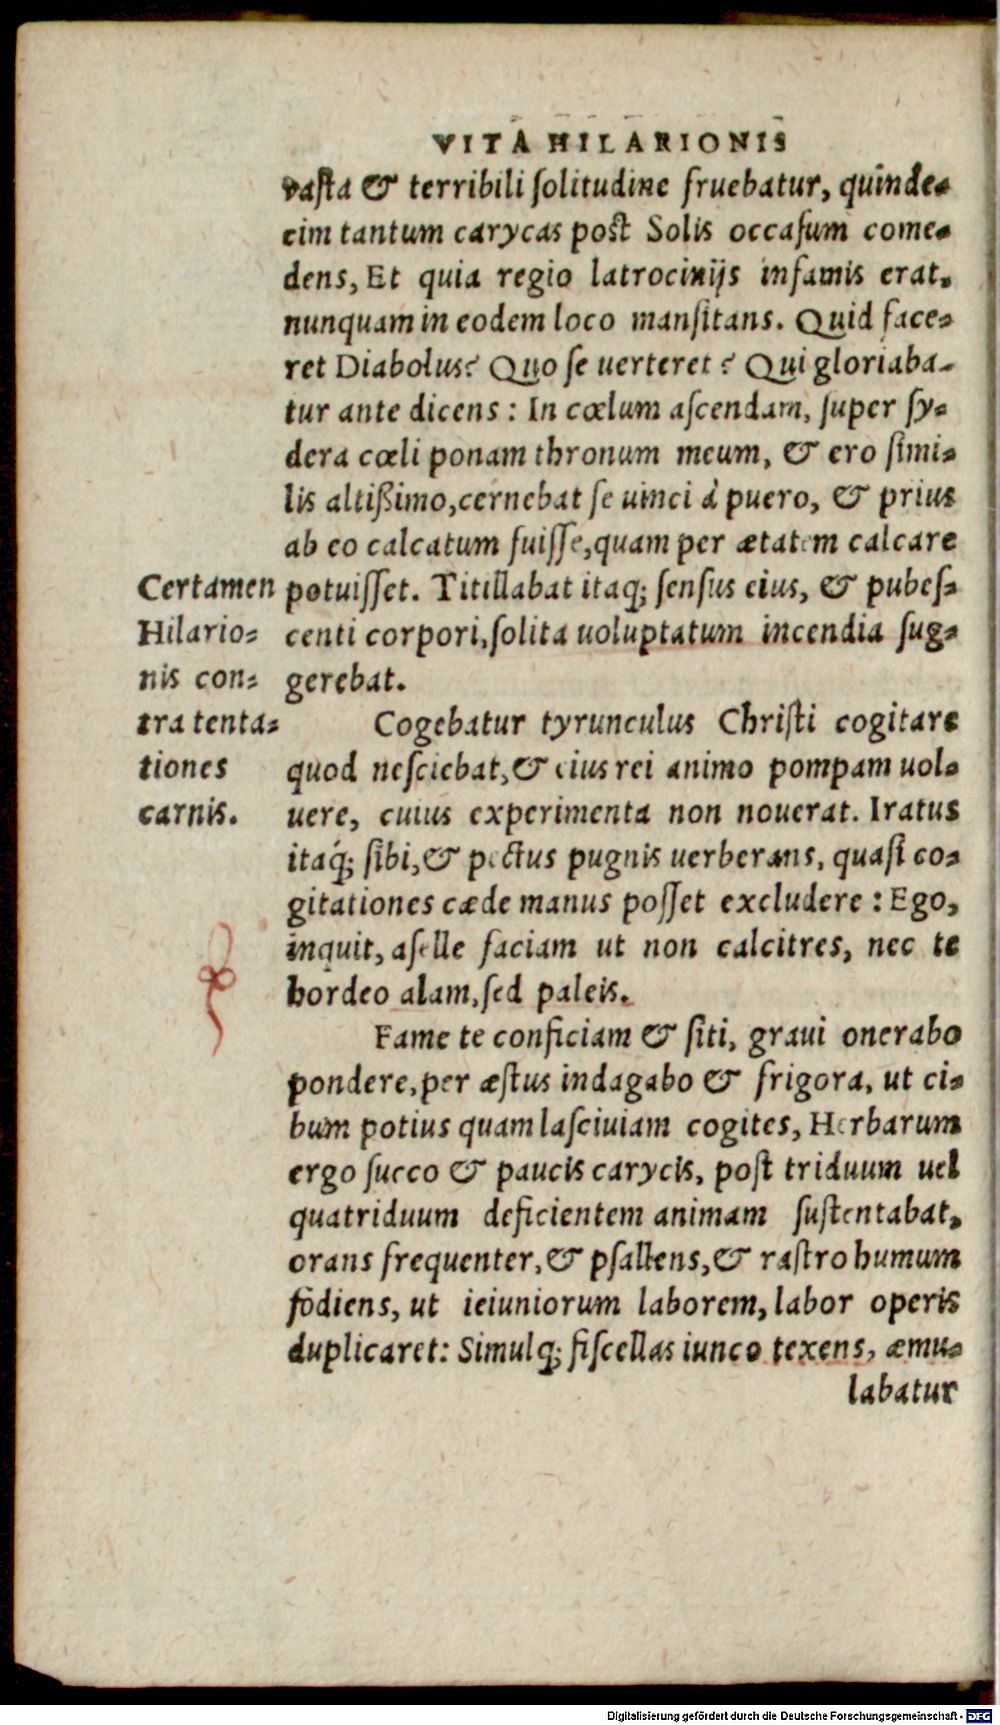 VITA HILARIONIS
vasta & terribili solitudine fruebatur, quinde-
cim tantum carycas post Solis occasum come-
dens, Et quia regio latrocinijs infamis erat,
nunquam in eodem loco mansitans. Quid face-
ret Diabolus? Quo se uerteret? Qui gloriaba-
tur ante dicens: In cœlum ascendam, super sy-
dera cœli ponam thronum meum, & ero simi-
lis altißimo, cernebat se uinci à puero, & prius
ab eo calcatum fuisse, quam per ætatem calcare
potuisset. Titillabat itaq; sensus eius, & pubes-
centi corpori, solita uoluptatum incendia sug-
gerebat.
Certamen
Hilario-
nis con-
tra tenta-
tiones
carnis.
Cogebatur tyrunculus Christi cogitare
quod nesciebat, & eius rei animo pompam uol-
uere, cuius experimenta non nouerat. Iratus
itaq; sibi, & pectus pugnis uerberans, quasi co-
gitationes cæde manus posset excludere: Ego,
inquit, aselle faciam ut non calcitres, nec te
hordeo alam, sed paleis.
Fame te conficiam & siti, graui onerabo
pondere, per æstus indagabo & frigora, ut ci-
bum potius quam lasciuiam cogites, Herbarum
ergo succo & paucis carycis, post triduum uel
quatriduum deficientem animam sustentabat,
orans frequenter, & psallens, & rastro humum
fodiens, ut ieiuniorum laborem, labor operis
duplicaret: Simulq; fiscellas iunco texens, æmu-
labatur
Digitalisierung gefördert durch die Deutsche Forschungsgemeinschaft - DFG